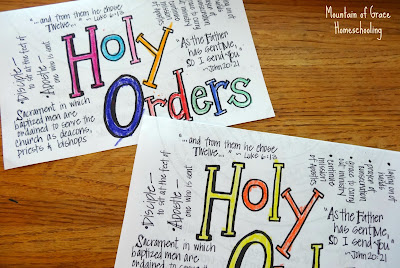 Mountain of Grace
Homeschooling
"...and from them he chose
Twelve..." ~ Luke 6:13
Holy
Orders
Disciple ~
to sit at the feet of
Apostle ~
one who is sent
"As the Father
has sent me,
so I send you"
~John 20:21
Sacrament in which
baptized men are
ordained to serve the
church as deacons,
priests & bishops
"...and from them he chose
Twelve..." ~ Luke 6:13
Holy
Disciple ~
to sit at the feet of
Apostle ~
one who is sent
laying on of
hands
prayer of
consecration
"As the Father
has sent me,
so I send you"
~John 20:21
Sacrament in which
baptized men are
ordained to serve